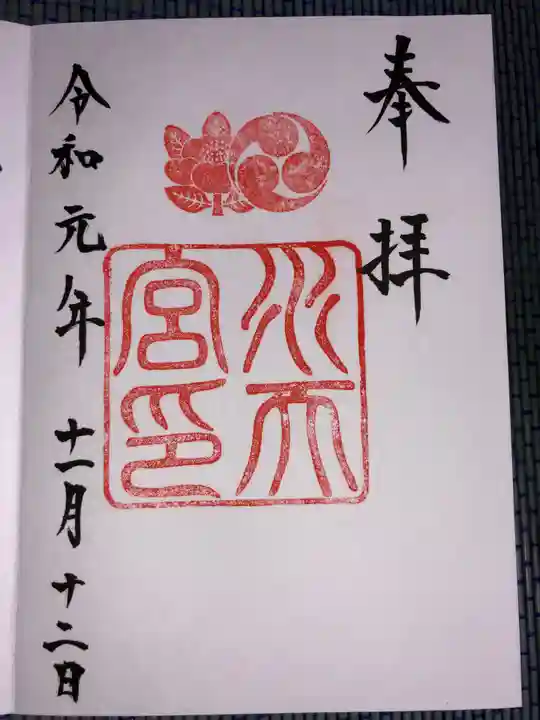 奉拝
水天
宮印
令和元年十一月十二日